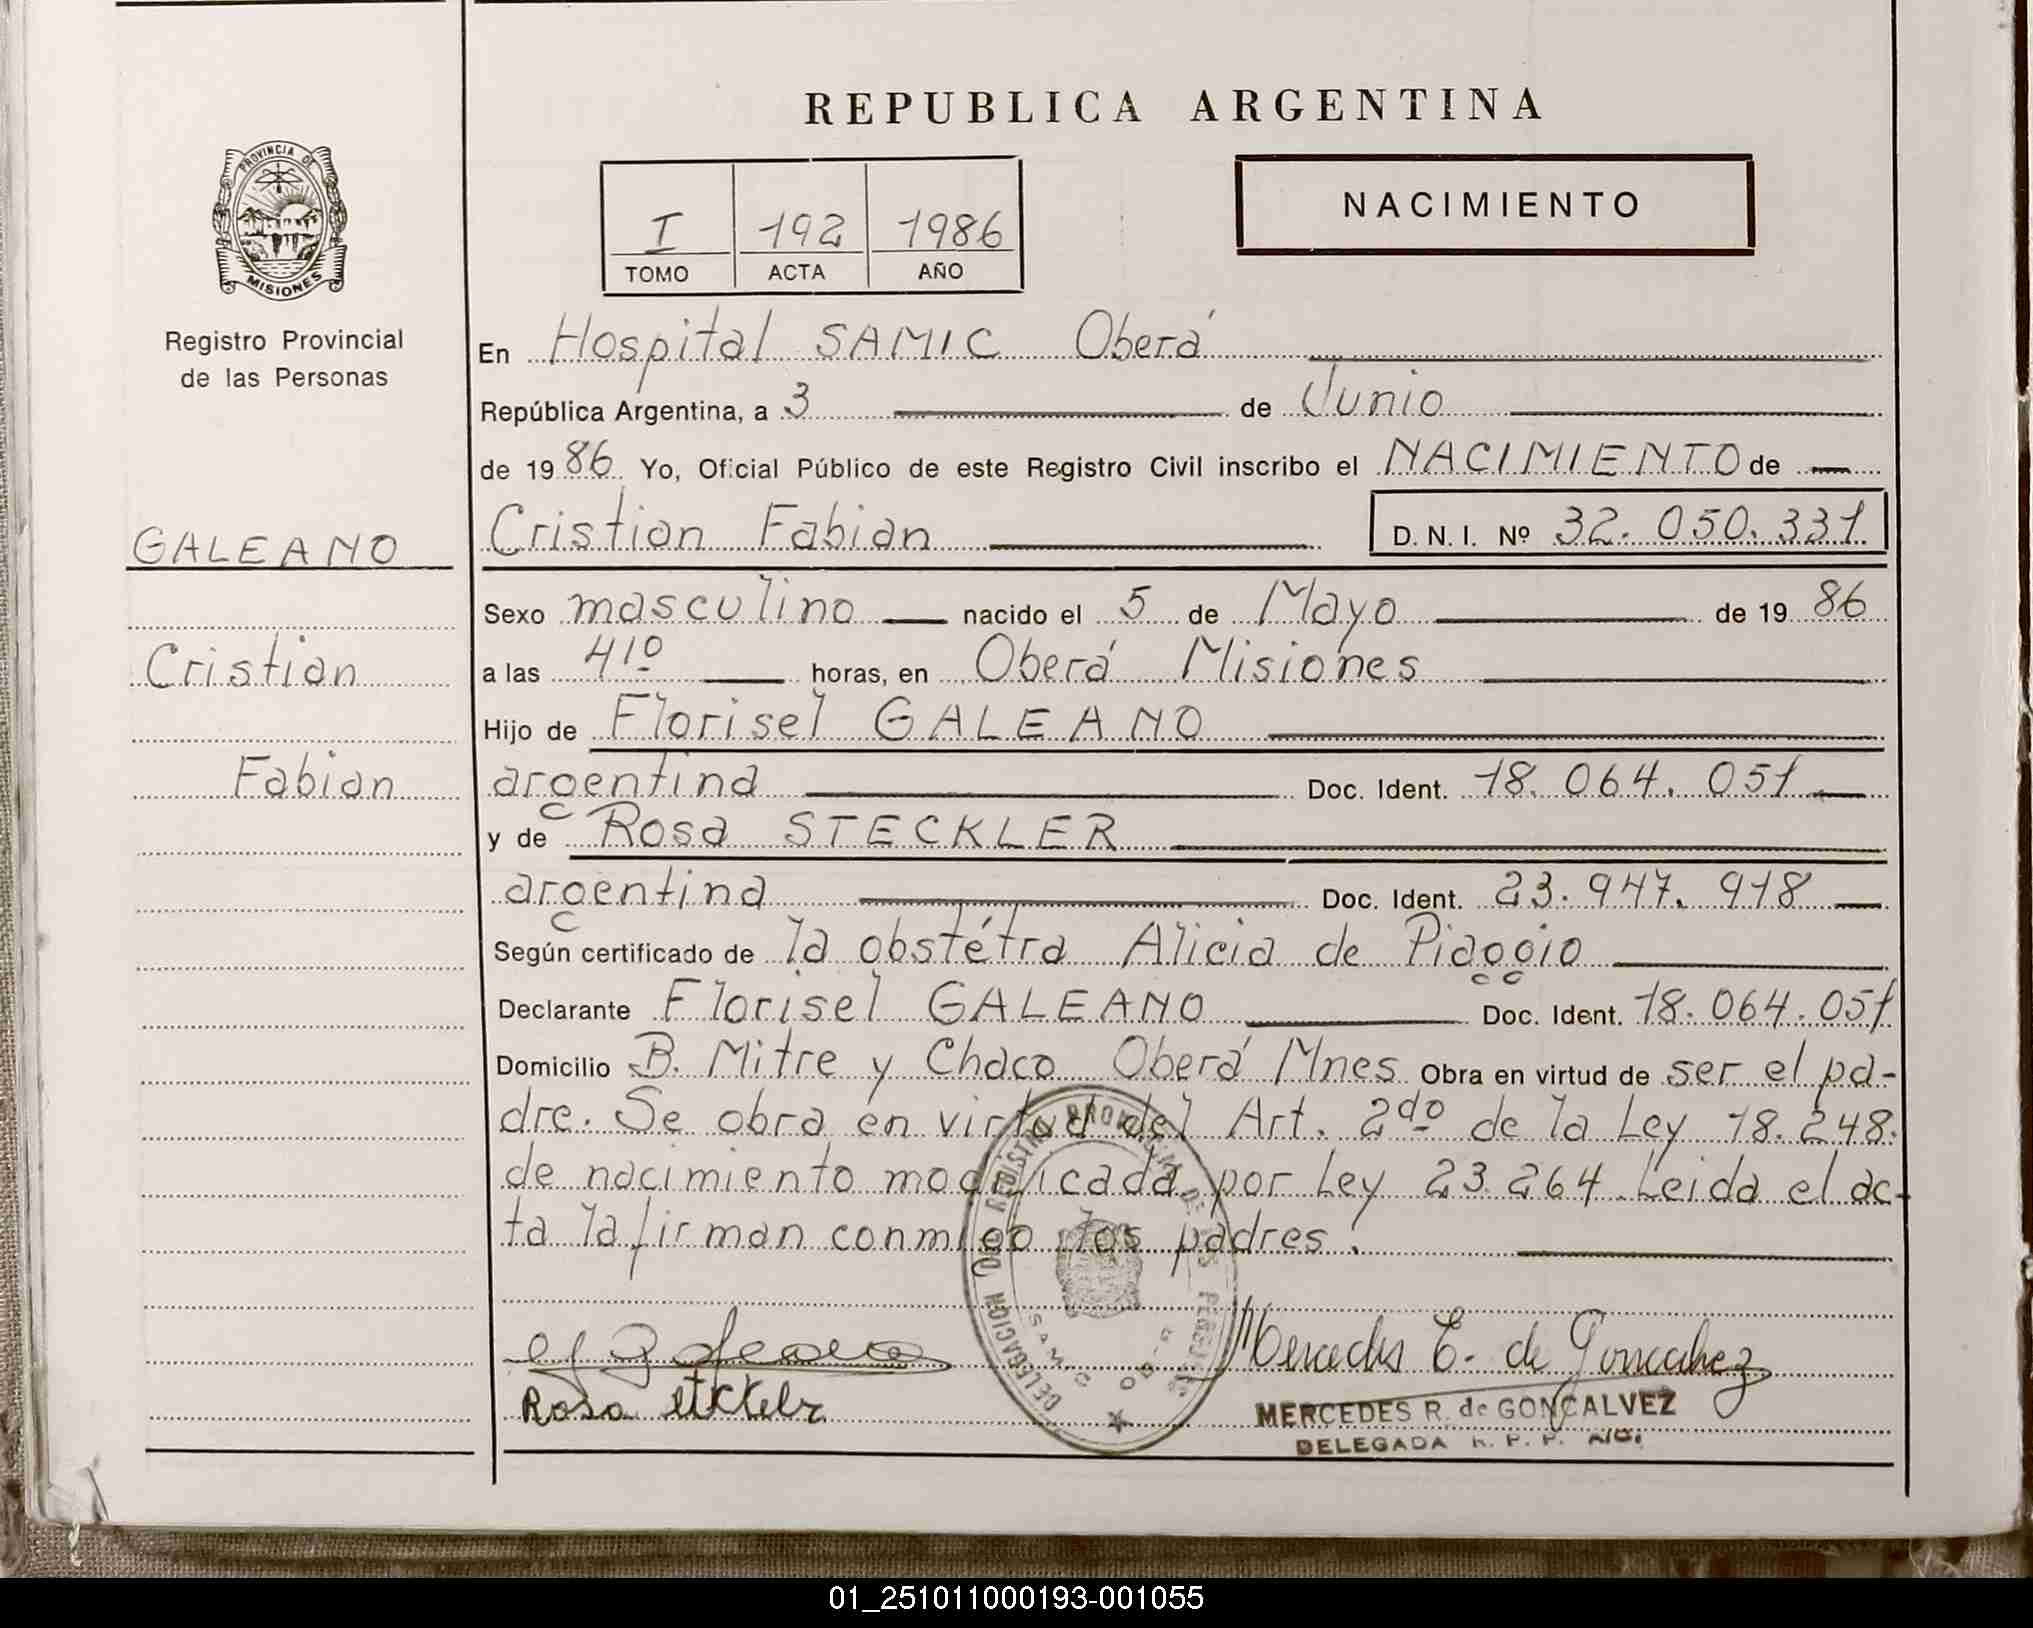 REPUBLICA ARGENTINA
PROVINCIA DE
MISIONES
Registro Provincial
de las Personas
I 192 1986
TOMO ACTA AÑO
NACIMIENTO
En Hospital SAMIC Oberá
República Argentina, a 3 de Junio
de 1986 Yo, Oficial Público de este Registro Civil inscribo el NACIMIENTO de
GALEANO
Cristian Fabian D. N. I. Nº 32.050.331
Sexo masculino nacido el 5 de Mayo de 1986
Cristian
a las 4¹⁰ horas, en Oberá Misiones
Hijo de Florisel GALEANO
Fabian
argentina Doc. Ident. 18.064.051
y de Rosa STECKLER
argentina Doc. Ident. 23.947.918
Según certificado de la obstétra Alicia de Piaggio
Declarante Florisel GALEANO Doc. Ident. 18.064.051
Domicilio B. Mitre y Chaco Oberá Mnes Obra en virtud de ser el pa-
dre. Se obra en virtud del Art. 2do de la Ley 18.248.
de nacimiento modificada por Ley 23.264. Leida el ac-
ta la firman conmigo los padres.
DELEGACION REGISTRO PROVINCIAL DE LAS PERSONAS
Rosa Steckler
Mercedes E. de Goncalvez
MERCEDES R. de GONÇALVEZ
DELEGADA R. P. P.
01_251011000193-001055